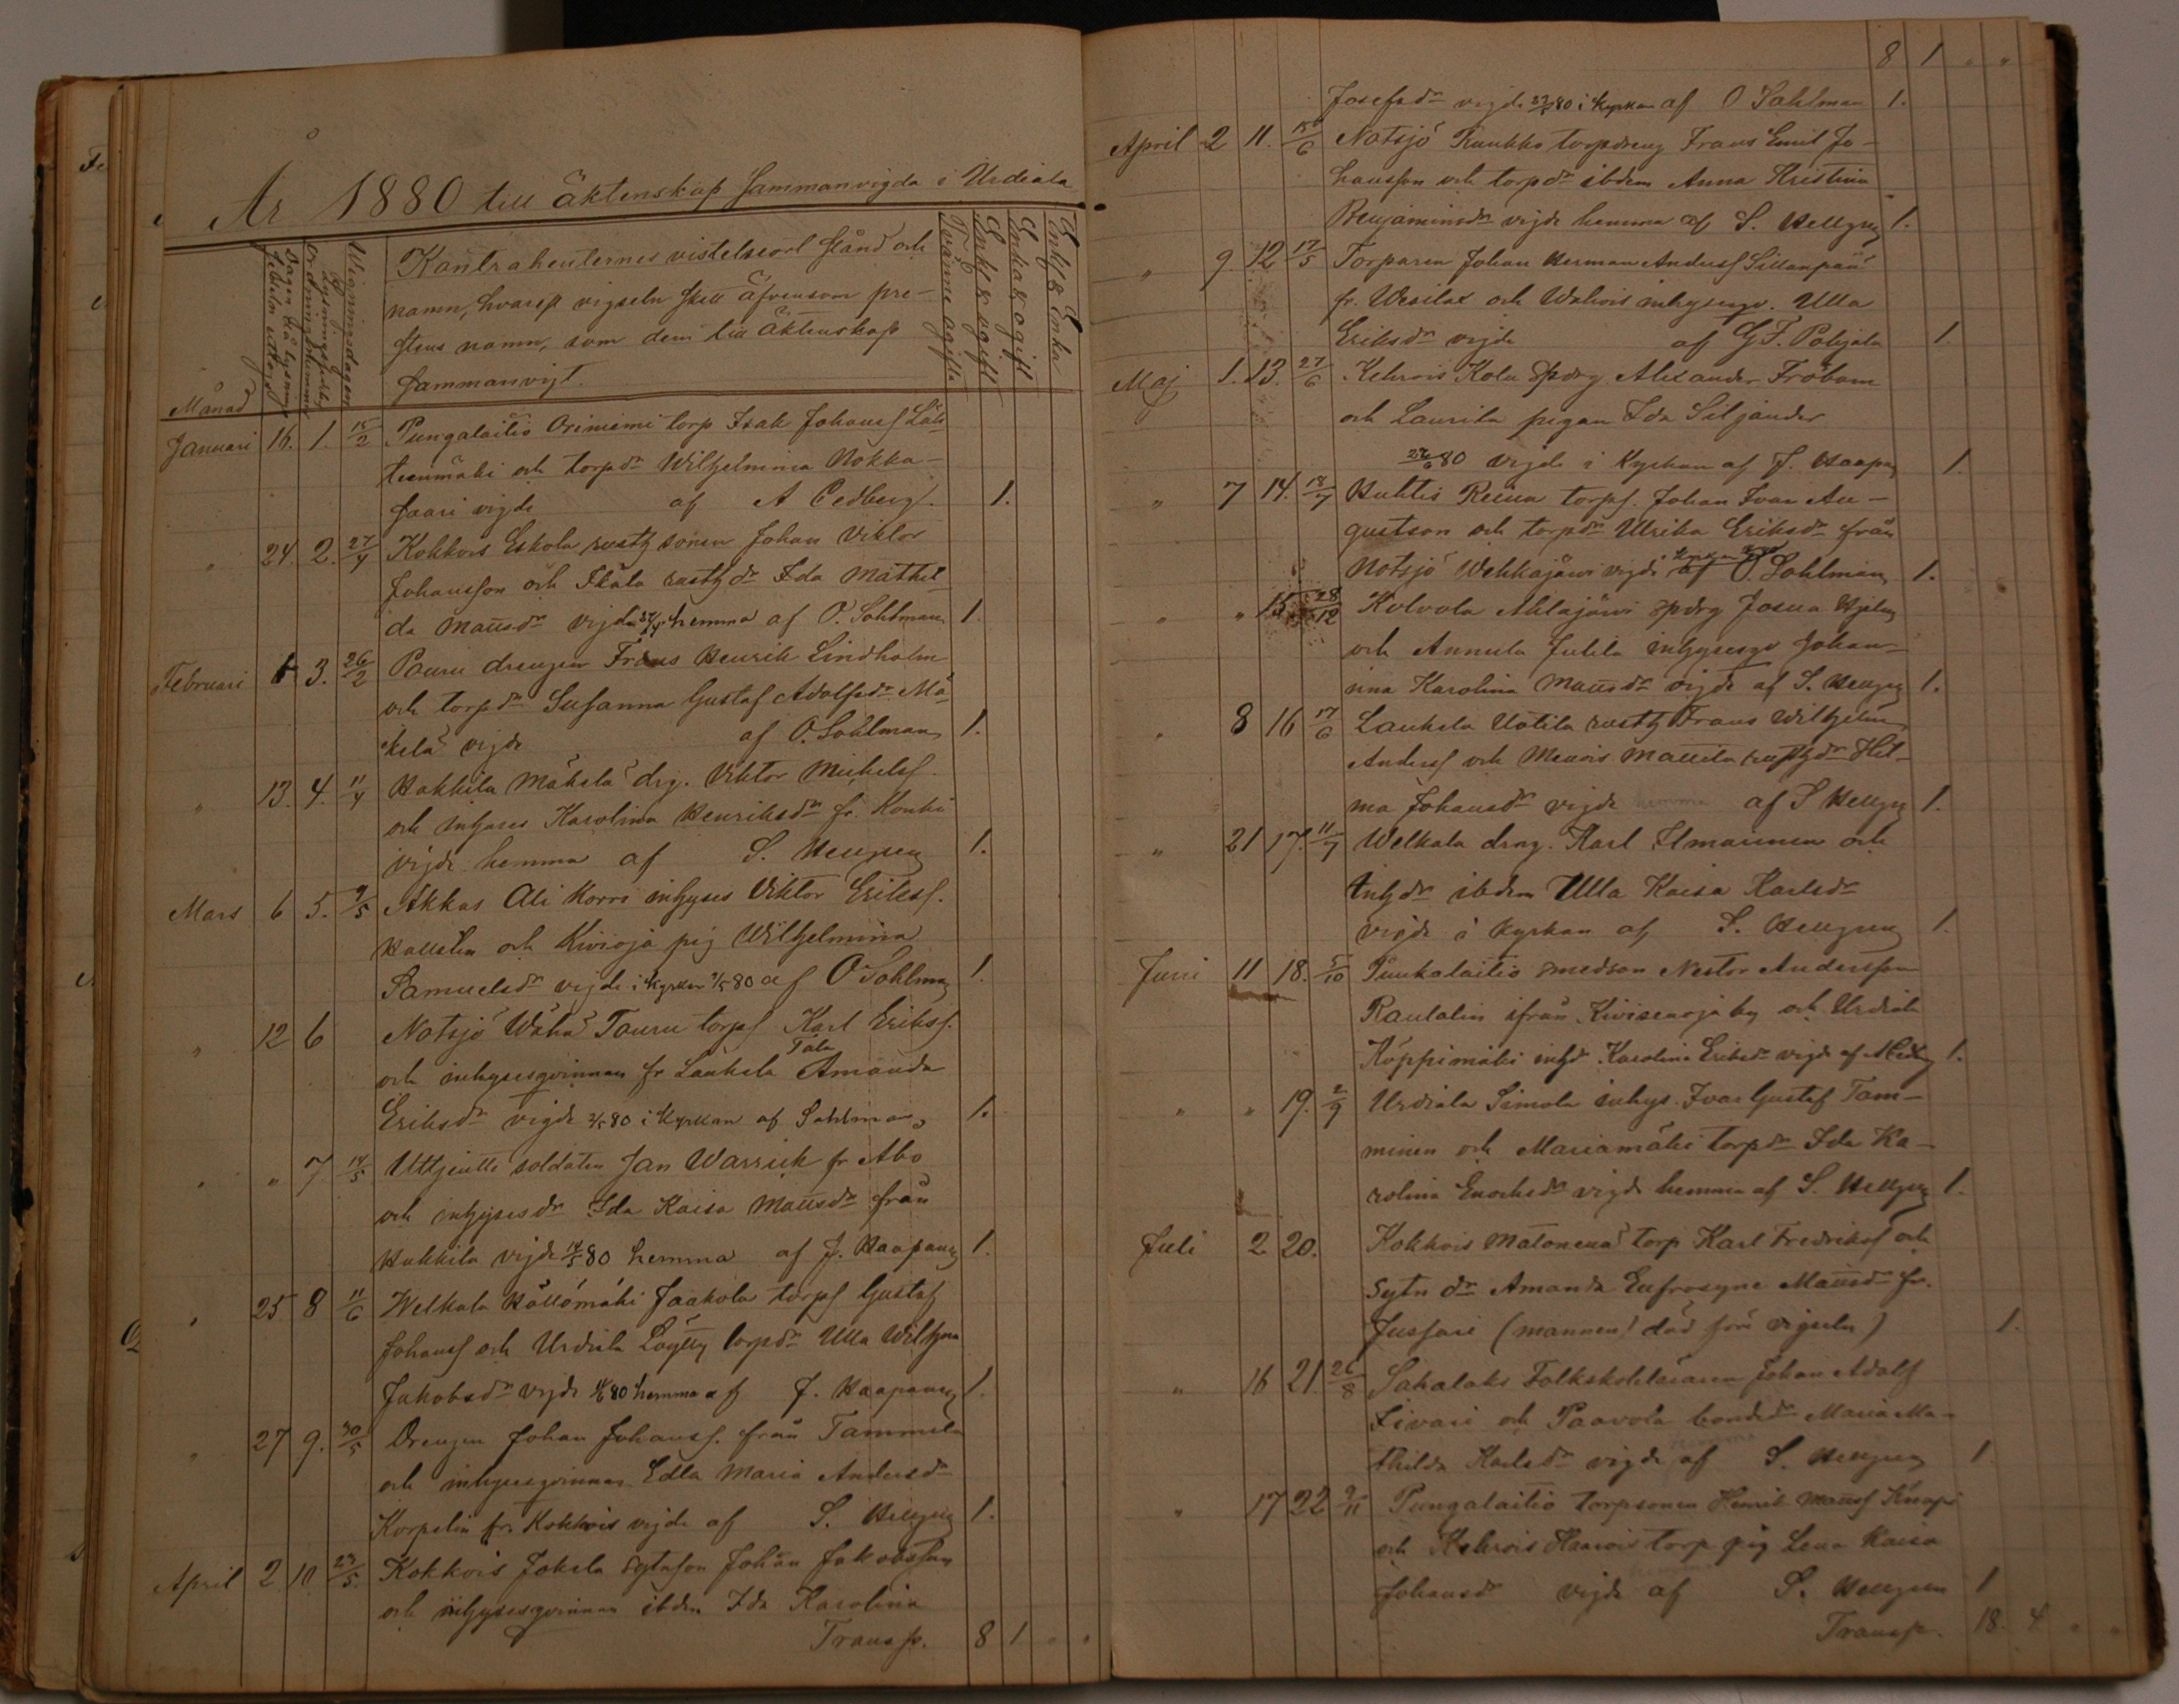 År 1880 till äktenskap sammanvigda i Urdiala
Månad
Dagen då lysning
Wigningsdagen
Kontrahenternes vistelseort stånd och
namn, hvarest vigseln skett äfvensom pre-
stens namn, som dem till äktenskap
sammanvigt.
Tvänne ogifta
Enkl. & ogift
Enka & ogift
Enkl. & Enka
Januari 16. 1. 15/2 Pungalaitio Oriniemi torp Isak Johanss Läh
teenmäki och torpdr Wilhelmina Nokka-
saari vigde af A Cedberg. 1.
" 24. 2. 27/4 Kokkois Eskola rusth sonen Johan Viktor
Johansson och Skåla rusth dr Ida Mathil
da Mattsdr vigda 27/4 hemma af O. Sohlman 1.
Februari 6 3. 26/2 Pauru drengen Frans Henrik Lindholm
och torpdr Susanna Gustaf Adolfsdr Mä
kelä vigde af O. Sohlman 1.
" 13. 4. 11/4 Hakkila Mäkelä drg. Viktor Mickelss.
och inhyses Karolina Henriksdr fr. Honki
vigde hemma af S. Hellgren 1.
Mars 6 5. 9/5 Akkas Ali Korro inhyses Viktor Erikss.
Hallelin och Kivioja pig Wilhelmina
Samuelsdr vigde i Kyrkan 9/5 80 af O Sohlman 1.
" 12 6 Notsjö Wähä Tauru torps Karl Erikss.
Tala
och inhysesqvinnan fr Laukela Amanda
Eriksdr vigde 2/5 80 i Kyrkan af Sohlman 1.
" " 7 14/5 Uttjente soldaten Jan Warrick fr Åbo
och inhysesdr Ida Kaisa Mattsdr från
Hakkila vigde 14/5 80 hemma af J. Haapanen 1.
" 25 8 11/6 Welkala Höllömäki Jaakola torps Gustaf
Johanss och Urdiala Löytty torpdr Ulla Wilhelmina
Jakobsdr vigde 11/6 80 hemma af J. Haapanen 1.
" 27 9. 30/5 Drengen Johan Johanss. från Tammela
och inhysesqvinnan Edla Maria Andersdr
Korpelin fr. Kokkois vigde af S. Hellgren 1.
April 2 10. 23/5. Kokkois Jokela sytnson Johan Jakobsson
och inhysesqvinnan ibdm Ida Karolina
Transp. 8 1 " "
8 1 " "
Josefsdr vigde 23/5 80 i Kyrkan af O Sohlman 1.
April 2 11. 15/6 Notsjö Ruukko torpdreng Frans Emil Jo-
hansson och torpdr ibdem Anna Kristina
Benjaminsdr vigde hemma af S. Hellgren 1.
" 9. 12 17/5 Torparen Johan Herman Anderss Sillanpää
fr. Wesilax och Wahois inhysesqv. Ulla
Eriksdr vigde af G F. Pohjala 1.
Maj 1. 13. 27/6 Kehrois Kolu spdrg Alexander Fröbom
och Laurila pigan Ida Siljander
27/6 80 vigde i Kyrkan af J. Haapan 1.
" 7 14. 18/7 Huhtis torps. Johan Ivar Au-
gustson och torpdr Ulrika Eriksdr från
Notsjö Wehkajärwi vigde af O. Sohlman 1.
" " 15 28/12 Kolvola Ahlajärvi spdrg Josua Hjelm
och Annula Julila inhysesqv Johan-
nina Karolina Mattsdr vigde af S. Hellgren 1.
" 8 16 17/6 Laukela Uotila rusth Frans Wilhelm
Anderss och Menois Mattila rusthdr Hil-
ma Johansdr vigde hemma af S Hellgren 1.
" 21 17. 11/7 Welkala drng. Karl Ilmarinen och
Inhdr ibdem Ulla Kaisa Karlsdr
vigde i Kyrkan af S. Hellgren 1.
Juni 11 18. 5/10 Puukalaitio smedson Nestor Andersson
Rautalin ifrån Kivisenoja by och Urdiala
Köppimäki inhd Karolina Eriksdr vigde af 1.
" " 19. 2/9 Urdiala Simola inhys. Ivar Gustaf Tam-
minen och Mariamäki torpdr Ida Ka-
rolina Enochsdr vigde hemma af S. Hellgren 1.
Juli 2 20. Kokkois Matonenä torp Karl Fredrikss och
Sytn dr Amanda Eufrosyne Mattsdr fr.
Jussari (mannen död före vigseln) 1.
" 16 21. 26/8 Sahalaks Folkskoleläraren Johan Adolf
Livari och Paavola bondedr Maria Ma-
thilda Karlsdr vigde af S. Hellgren 1
" 17 22 9/11 Pungalaitio torpsonen Henrik Matts Knapi
och Kehrois Haarois torp pig Lena Kaisa
Johansdr vigde af S. Hellgren 1
Transp. 18. 4 " "